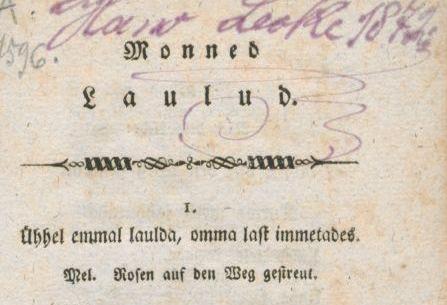 Hans Leoke 1872
1596.
Monned
Laulud.
1.
Ühhel emmal laulda, omma last immetades.
Mel. Rosen auf den Weg gestreut.